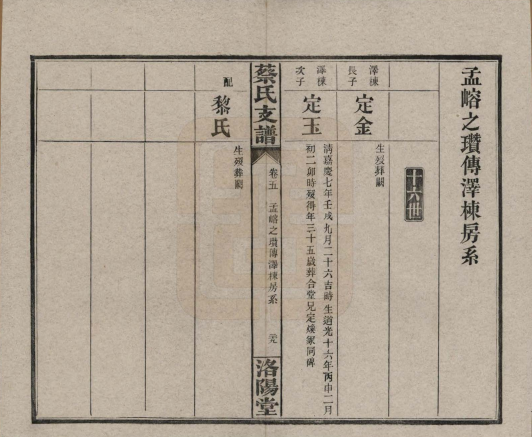 孟嵱之瓚傳澤棟房系
十六世
澤棟
長子
定金
生歿葬闕
澤棟
次子
定玉
清嘉慶七年壬戌九月二十六吉時生道光十六年丙申二月
初二卯時歿得年三十五歲葬合堂兄定煥冢同碑
蔡氏支譜
卷五
孟嵱之瓚傳澤棟房系
洛陽堂
配
黎氏
生歿葬闕